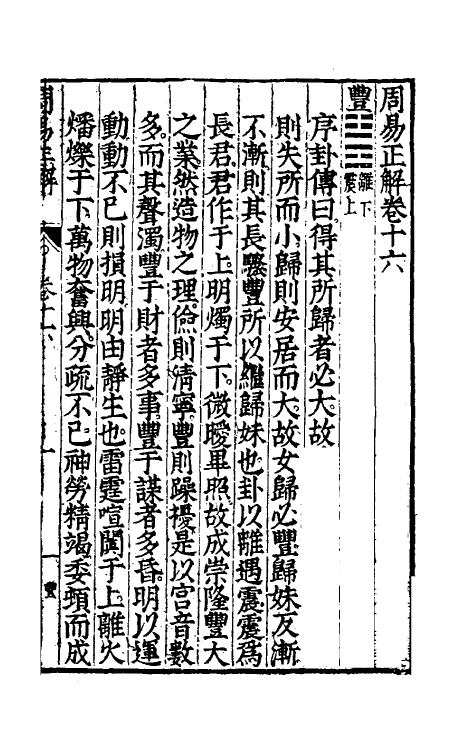 周易正解卷十六
豐 離下 震上
序卦傳曰得其所歸者必大。故
則失所而小歸則安居而大。故女歸必豐歸妹反漸
不漸則其長驟豐所以繼歸妹也卦以離遇震震爲
長君。君作于上。明燭于下。微曖畢照故成崇隆豐大
之業。然造物之理。儉則清寧。豐則躁擾。是以宫音數
多。而其聲濁豐于財者多事。豐于謀者多昏。明以運
動動不已則損明。明由靜生也。雷霆喧闐于上。離火
燔爍于下。萬物奮興。分疏不已。神勞精竭。委頓而成
周易正解
卷十六
一
豐